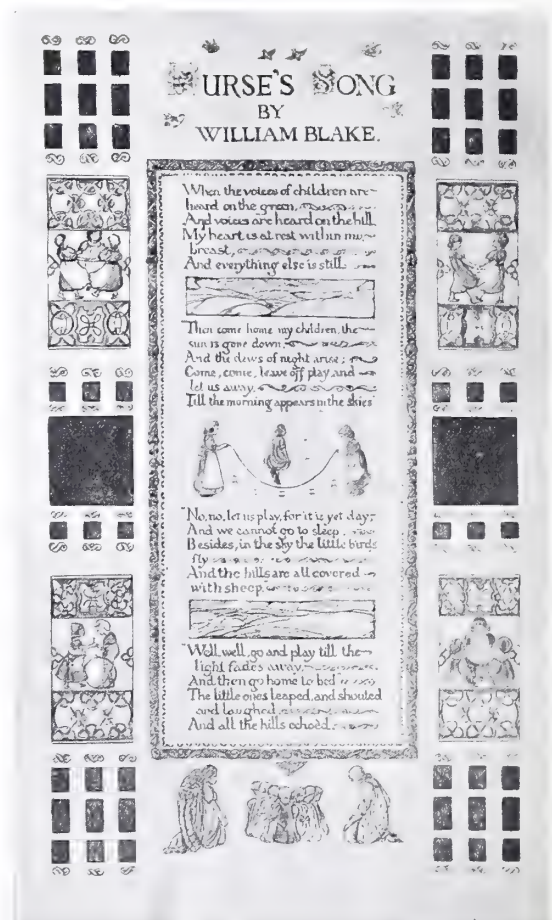 NURSE'S SONG
BY
WILLIAM BLAKE.
When the voices of children are
heard on the green,
And voices are heard on the hill
My heart is at rest within my
breast,
And everything else is still.
Then come home my children, the
sun is gone down,
And the dews of night arise;
Come, come, leave off play, and
let us away,
Till the morning appears in the skies
"No, no, let us play, for it is yet day,
And we cannot go to sleep.
Besides, in the sky the little birds
fly
And the hills are all covered
with sheep.
"Well, well, go and play till the
light fades away,
And then go home to bed
The little ones leaped, and shouted
and laughed
And all the hills echoed.